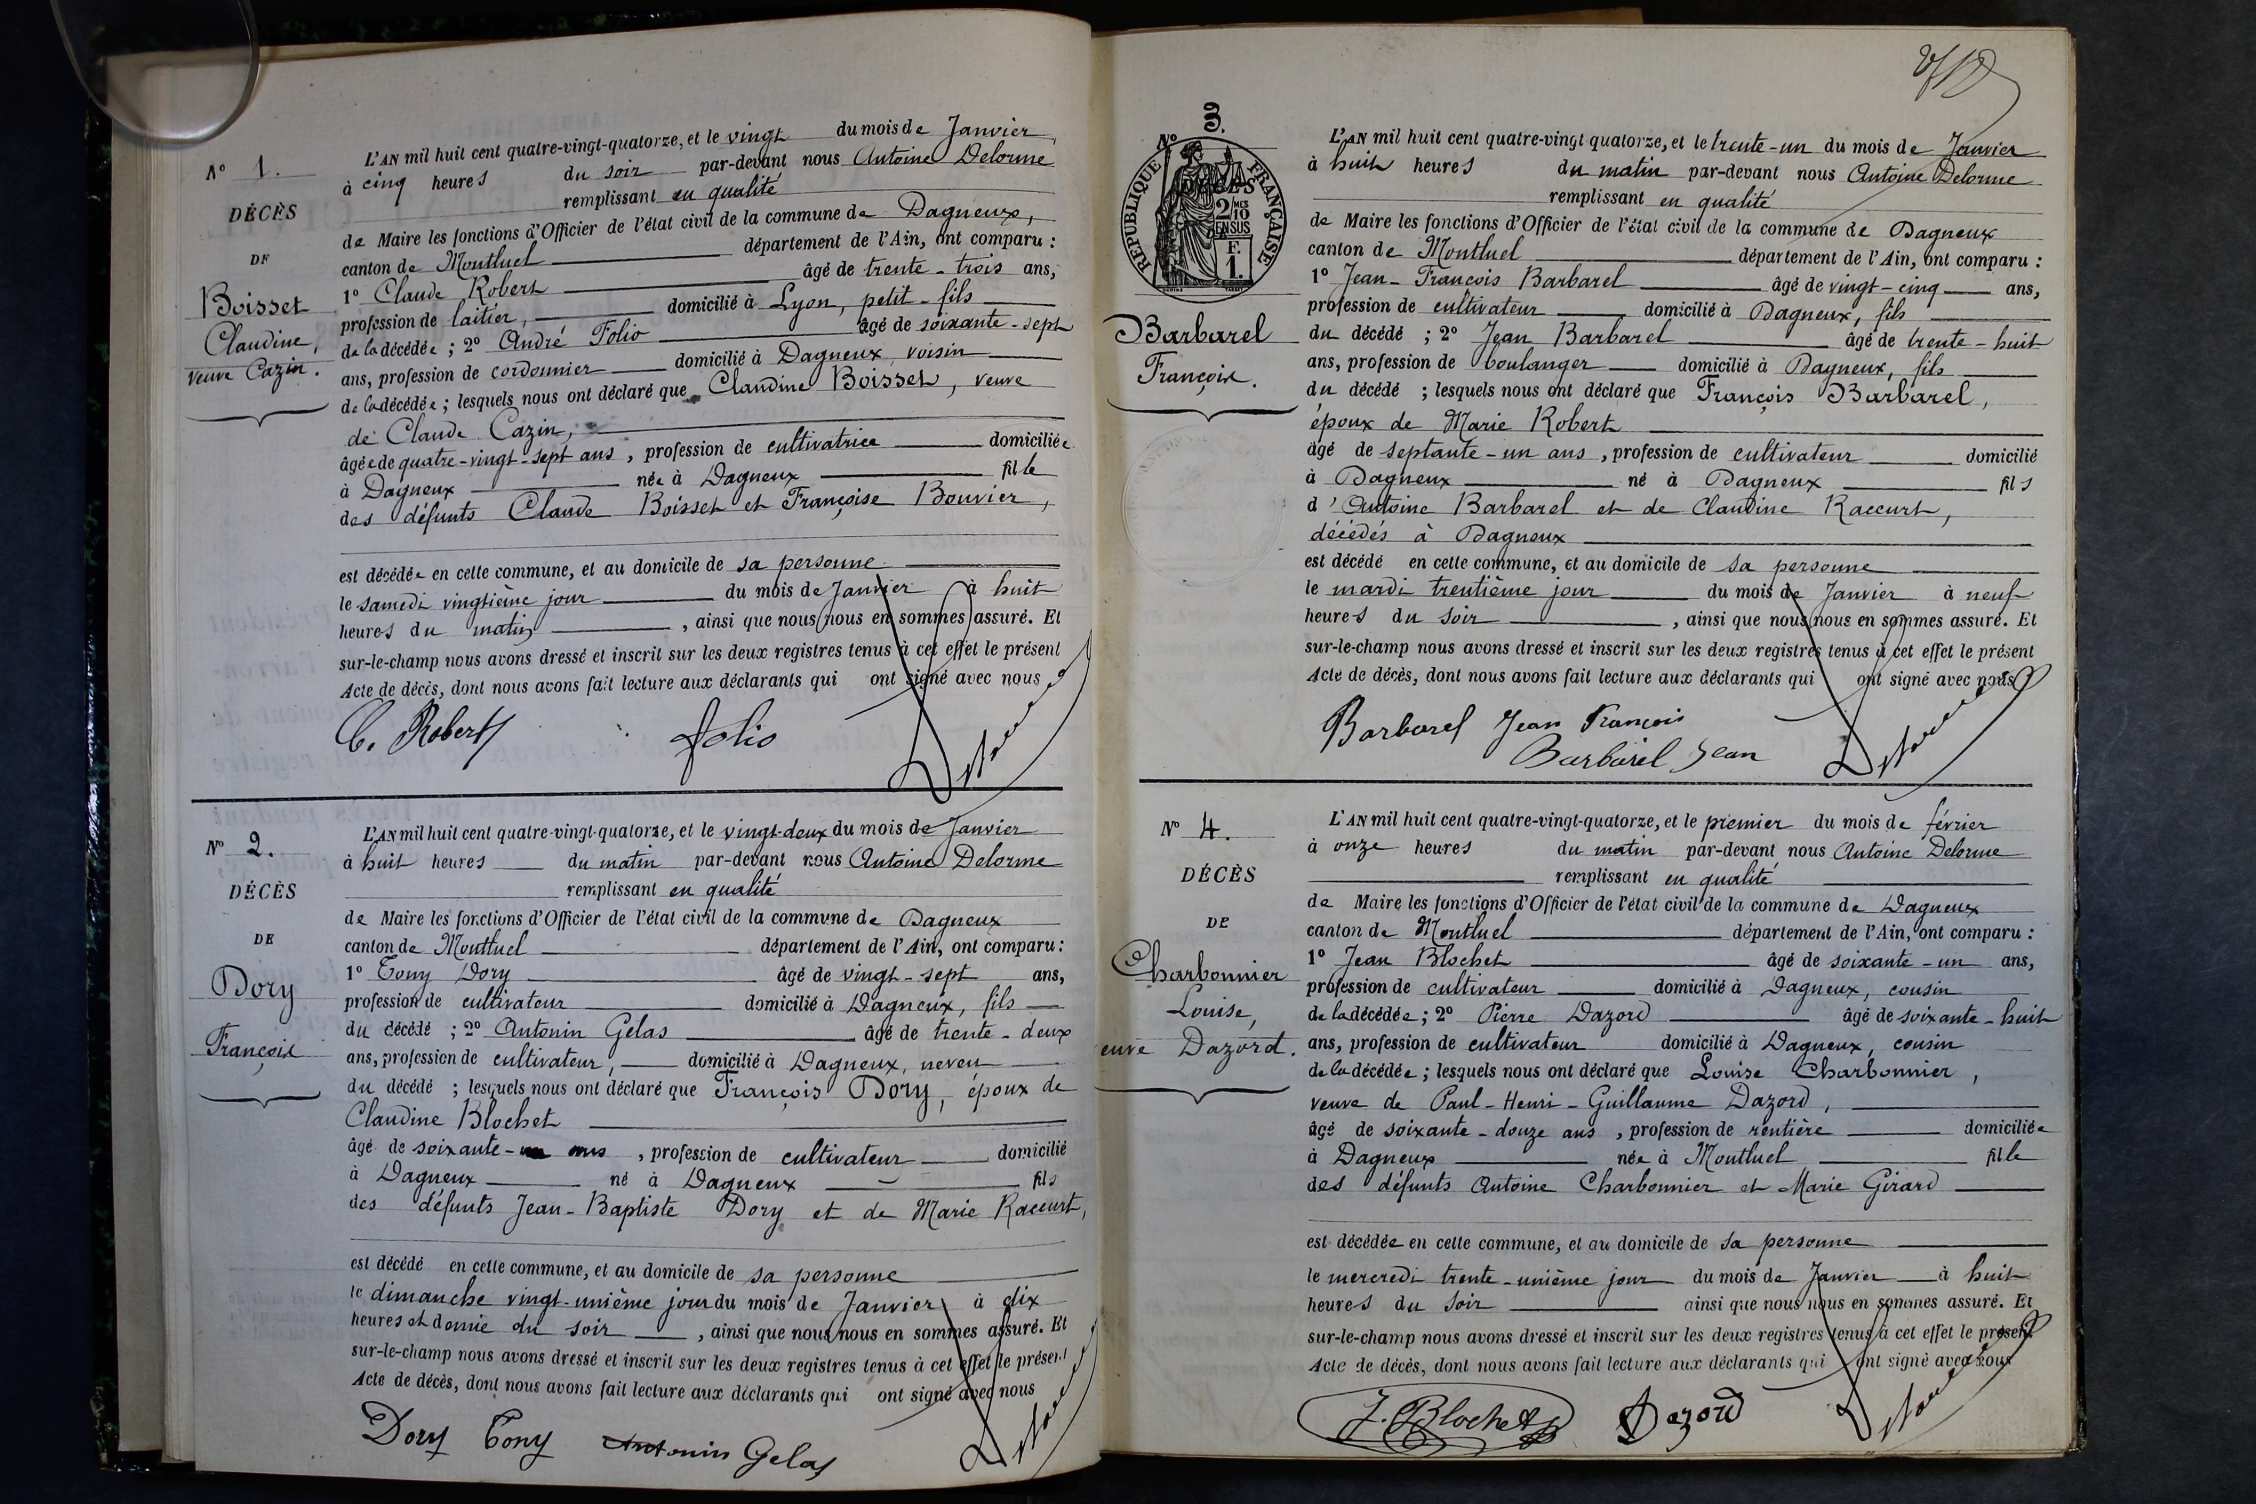 Nº 1.
DÉCÈS
DE
Boisset
Claudine,
veuve Cazin.
L'AN mil huit cent quatre-vingt-quatorze, et le vingt du mois de Janvier,
à cinq heures du soir par-devant nous Antoine Delorme
remplissant en qualité
de Maire les fonctions d'Officier de l'état civil de la commune de Dagneux,
canton de Montluel département de l'Ain, ont comparu :
1º Claude Robert âgé de trente-trois ans,
profession de laitier, domicilié à Lyon, petit-fils
de la décédée ; 2º André Folio âgé de soixante-sept
ans, profession de cordonnier domicilié à Dagneux, voisin
de la décédée ; lesquels nous ont déclaré que Claudine Boisset, veuve
de Claude Cazin,
âgée de quatre-vingt-sept ans, profession de cultivatrice domiciliée
à Dagneux née à Dagneux fille
des défunts Claude Boisset et Françoise Bouvier,
est décédée en cette commune, et au domicile de sa personne
le samedi vingtième jour du mois de Janvier à huit
heures du matin, ainsi que nous nous en sommes assuré. Et
sur-le-champ nous avons dressé et inscrit sur les deux registres tenus à cet effet le présent
Acte de décès, dont nous avons fait lecture aux déclarants qui ont signé avec nous
C. Robert folio Delorme
Nº 2.
DÉCÈS
DE
Dory
François
L'AN mil huit cent quatre-vingt-quatorze, et le vingt-deux du mois de Janvier
à huit heures du matin par-devant nous Antoine Delorme
remplissant en qualité
de Maire les fonctions d'Officier de l'état civil de la commune de Dagneux
canton de Montluel département de l'Ain, ont comparu :
1º Tony Dory âgé de vingt-sept ans,
profession de cultivateur domicilié à Dagneux, fils
du décédé ; 2º Antonin Gelas âgé de trente-deux
ans, profession de cultivateur, domicilié à Dagneux, neveu
du décédé ; lesquels nous ont déclaré que François Dory, époux de
Claudine Blochet
âgé de soixante- ans, profession de cultivateur domicilié
à Dagneux né à Dagneux fils
des défunts Jean-Baptiste Dory et de Marie Raccurt,
est décédé en cette commune, et au domicile de sa personne
le dimanche vingt-unième jour du mois de Janvier à dix
heures et demie du soir, ainsi que nous nous en sommes assuré. Et
sur-le-champ nous avons dressé et inscrit sur les deux registres tenus à cet effet le présent
Acte de décès, dont nous avons fait lecture aux déclarants qui ont signé avec nous
Dory Tony Antonin Gelas Delorme
Nº 3.
DÉCÈS
RÉPUBLIQUE FRANÇAISE
2/10
MES
EN SUS
F.
1.
Barbarel
François.
L'AN mil huit cent quatre-vingt quatorze, et le trente-un du mois de Janvier
à huit heures du matin par-devant nous Antoine Delorme
remplissant en qualité
de Maire les fonctions d'Officier de l'état civil de la commune de Dagneux
canton de Montluel département de l'Ain, ont comparu :
1º Jean-François Barbarel âgé de vingt-cinq ans,
profession de cultivateur domicilié à Dagneux, fils
du décédé ; 2º Jean Barbarel âgé de trente-huit
ans, profession de boulanger domicilié à Dagneux, fils
du décédé ; lesquels nous ont déclaré que François Barbarel,
époux de Marie Robert
âgé de septante-un ans, profession de cultivateur domicilié
à Dagneux né à Dagneux fils
d'Antoine Barbarel et de Claudine Raccurt,
décédés à Dagneux
est décédé en cette commune, et au domicile de sa personne
le mardi trentième jour du mois de Janvier à neuf
heures du soir, ainsi que nous nous en sommes assuré. Et
sur-le-champ nous avons dressé et inscrit sur les deux registres tenus à cet effet le présent
Acte de décès, dont nous avons fait lecture aux déclarants qui ont signé avec nous
Barbarel Jean François
Barbarel Jean Delorme
Nº 4.
DÉCÈS
DE
Charbonnier
Louise,
euve Dazord.
L'AN mil huit cent quatre-vingt-quatorze, et le premier du mois de février
à onze heures du matin par-devant nous Antoine Delorme
remplissant en qualité
de Maire les fonctions d'Officier de l'état civil de la commune de Dagneux
canton de Montluel département de l'Ain, ont comparu :
1º Jean Blochet âgé de soixante-un ans,
profession de cultivateur domicilié à Dagneux, cousin
de la décédée ; 2º Pierre Dazord âgé de soixante-huit
ans, profession de cultivateur domicilié à Dagneux, cousin
de la décédée ; lesquels nous ont déclaré que Louise Charbonnier,
veuve de Paul-Henri-Guillaume Dazord,
âgé de soixante-douze ans, profession de rentière domiciliée
à Dagneux née à Montluel fille
des défunts Antoine Charbonnier et Marie Girard
est décédée en cette commune, et au domicile de sa personne
le mercredi trente-unième jour du mois de Janvier à huit
heures du soir ainsi que nous nous en sommes assuré. Et
sur-le-champ nous avons dressé et inscrit sur les deux registres tenus à cet effet le présent
Acte de décès, dont nous avons fait lecture aux déclarants qui ont signé avec nous
J. Blochet Dazord Delorme